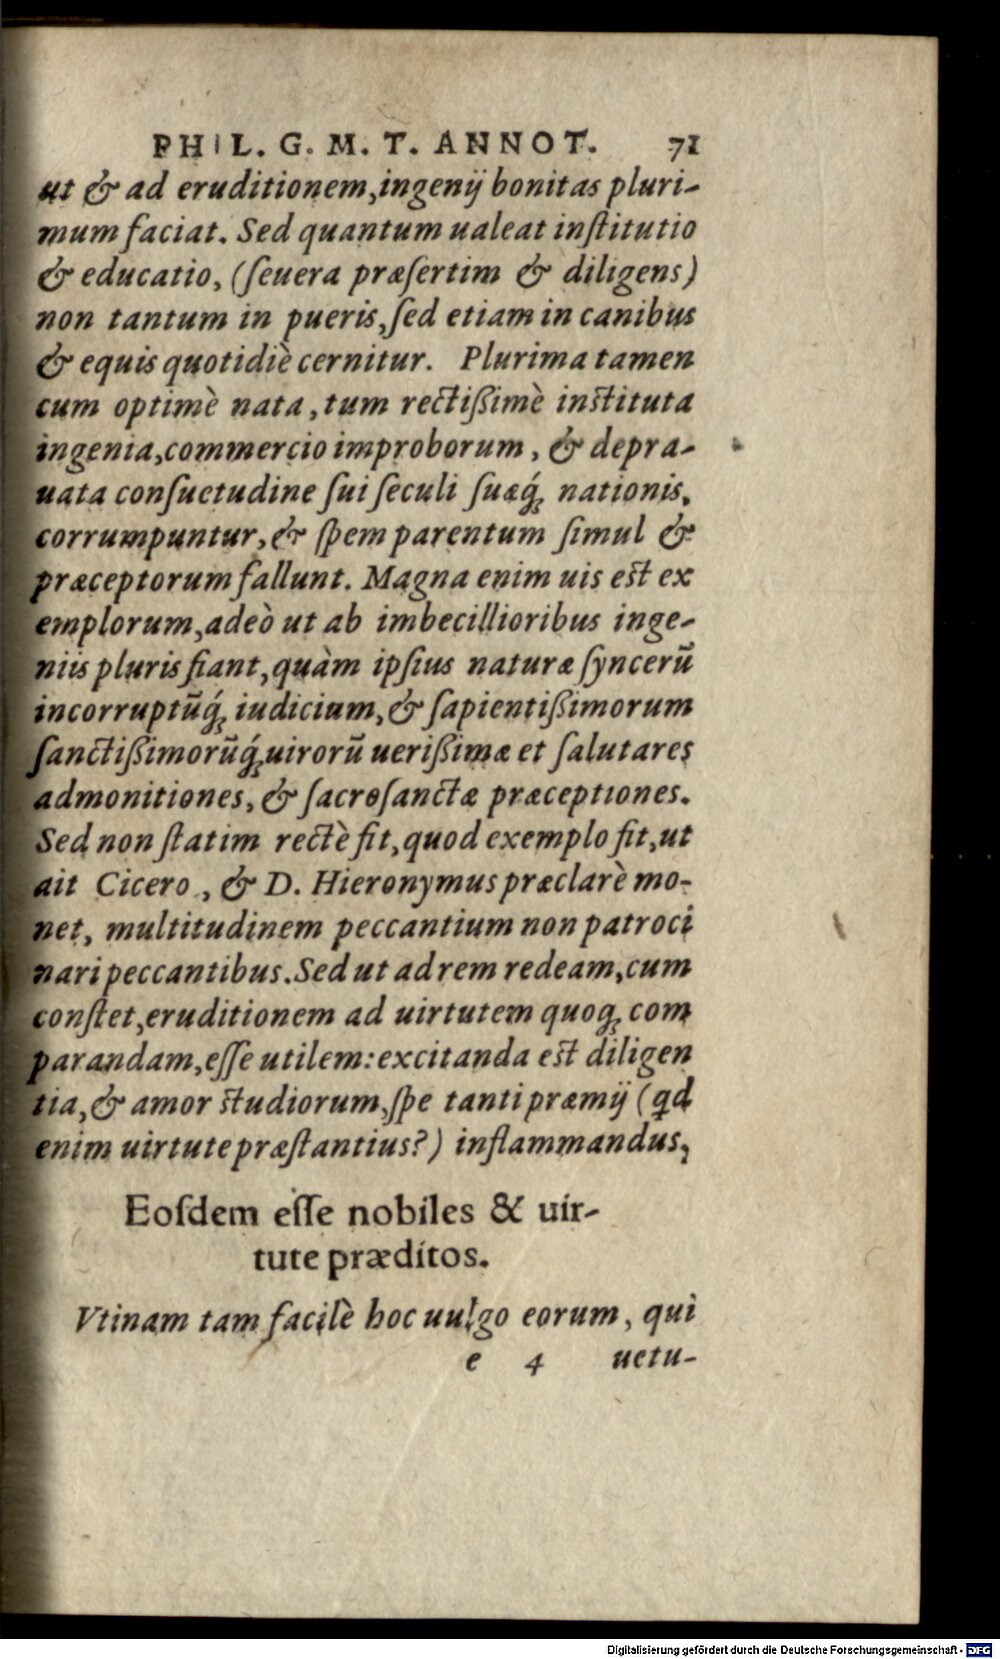 PHIL. G. M. T. ANNOT. 71
ut & ad eruditionem, ingenij bonitas pluri-
mum faciat. Sed quantum ualeat inſtitutio
& educatio, (ſeuera præſertim & diligens)
non tantum in pueris, ſed etiam in canibus
& equis quotidiè cernitur. Plurima tamen
cum optimè nata, tum rectißimè inſtituta
ingenia, commercio improborum, & depra-
uata conſuetudine ſui ſeculi ſuæq́; nationis,
corrumpuntur, & ſpem parentum ſimul &
præceptorum fallunt. Magna enim uis eſt ex
emplorum, adeò ut ab imbecillioribus inge-
niis pluris fiant, quàm ipſius naturæ ſyncerũ
incorruptũq́; iudicium, & ſapientißimorum
ſanctißimorũq́; uirorũ uerißimæ et ſalutares
admonitiones, & ſacroſanctæ præceptiones.
Sed non ſtatim rectè fit, quod exemplo fit, ut
ait Cicero, & D. Hieronymus præclarè mo-
net, multitudinem peccantium non patroci
nari peccantibus. Sed ut ad rem redeam, cum
conſtet, eruditionem ad uirtutem quoq; com
parandam, eſſe utilem: excitanda eſt diligen
tia, & amor ſtudiorum, ſpe tanti præmij (qd
enim uirtute præſtantius?) inflammandus,
Eoſdem eſſe nobiles & uir-
tute præditos.
Vtinam tam facilè hoc uulgo eorum, qui
e 4 uetu-
Digitalisierung gefördert durch die Deutsche Forschungsgemeinschaft - DFG